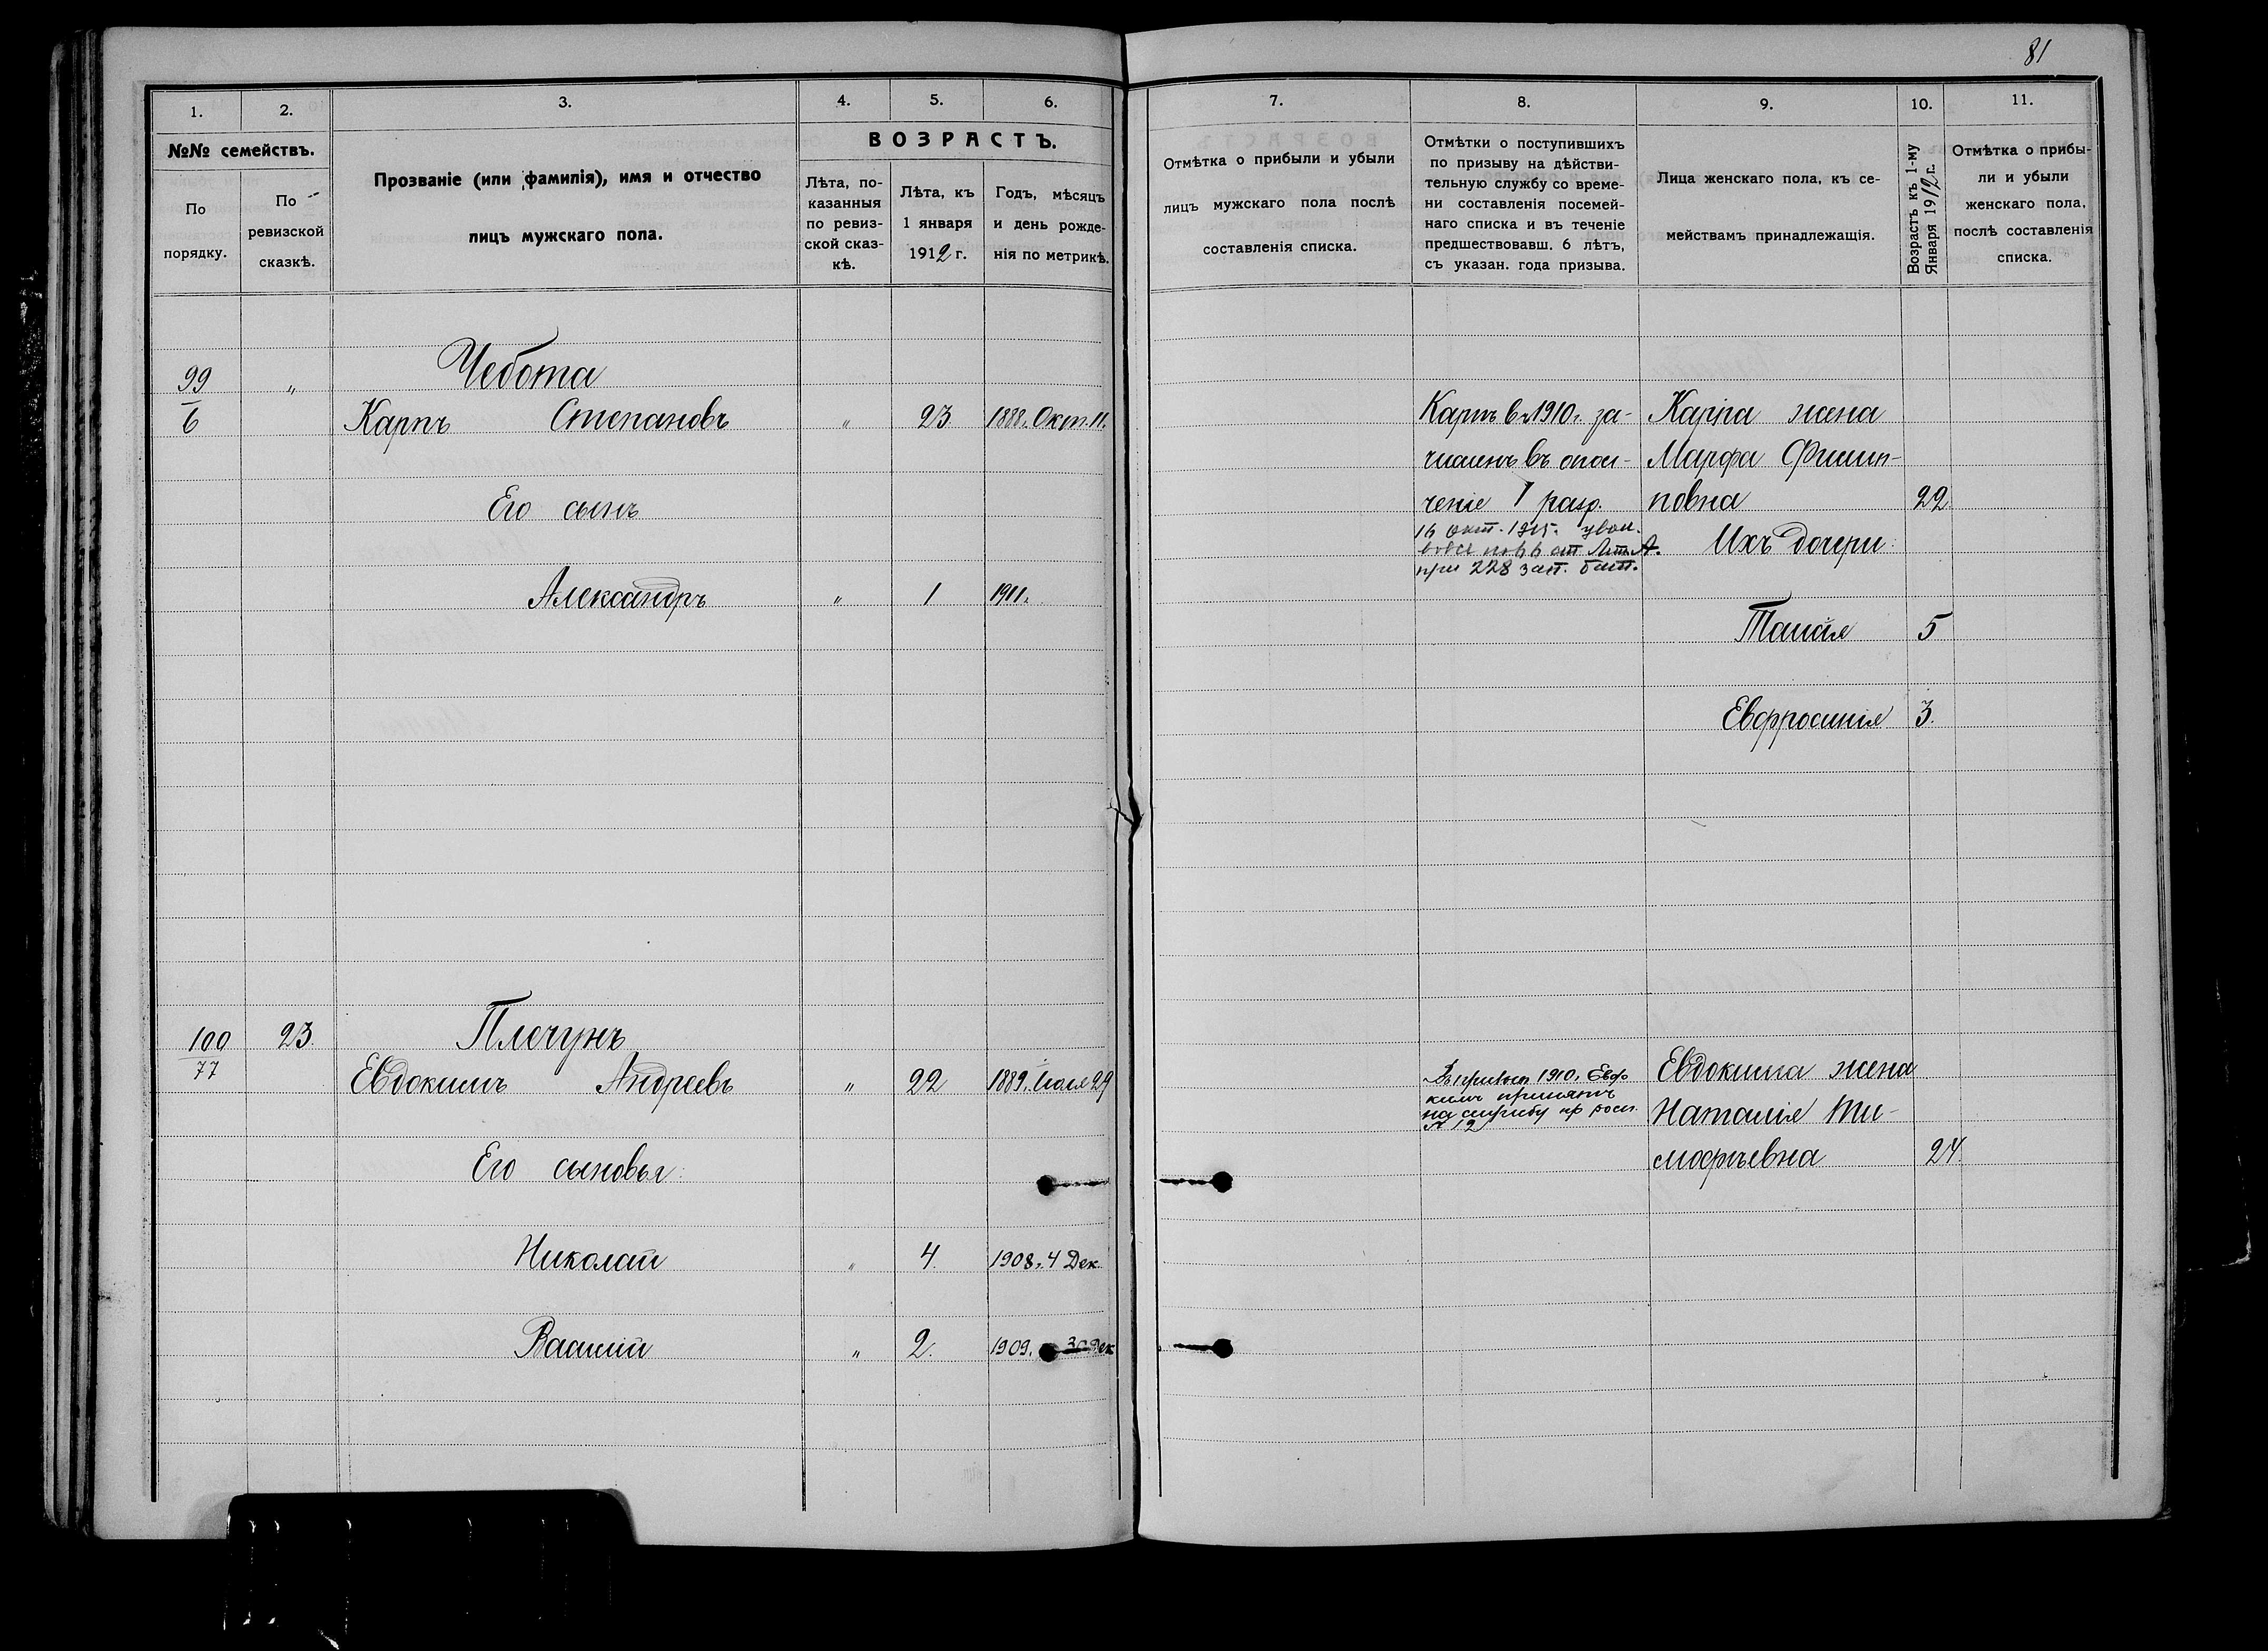 81
1. 2. 3. 4. 5. 6. 7. 8. 9. 10. 11.
№№ семействъ.
По порядку.
По ревизской сказкѣ.
Прозваніе (или фамилія), имя и отчество
лицъ мужскаго пола.
ВОЗРАСТЪ.
Лѣта, по-
казанныя
по ревиз-
ской сказ-
кѣ.
Лѣта, къ
1 января
1912 г.
Годъ, мѣсяцъ
и день рожде-
нія по метрикѣ.
Отмѣтка о прибыли и убыли
лицъ мужскаго пола послѣ
составленія списка.
Отмѣтки о поступившихъ
по призыву на дѣйстви-
тельную службу со време-
ни составленія посемей-
наго списка и въ теченіе
предшествовавш. 6 лѣтъ,
съ указан. года призыва.
Лица женскаго пола, къ се-
мействамъ принадлежащія.
Возрастъ къ 1-му
Января 1912 г.
Отмѣтка о прибы-
ли и убыли
женскаго пола,
послѣ составленія
списка.
99 „ Чебота
6 Карпъ Степановъ „ 23 1888. Окт. 11.
Его сынъ
Александръ „ 1 1911.
Карпъ въ 1910 г. за-
численъ въ опол-
ченіе I разр.
16 окт. 1915. увол.
при 228 зап. бат.
Карпа жена
Марфа Филип-
повна 22
Ихъ дочери:
Таисія 5
Евфросинія 3.
100 23. Плечунъ
77 Евдокимъ Андреевъ „ 22 1889. Іюля 29
Его сыновья:
Николай „ 4. 1908. 4 Дек.
Василій „ 2. 1909. 30 Дек
1910. Евдо
кимъ принятъ
на службу
№ 12
Евдокима жена
Наталія Ти-
мофѣевна 24.